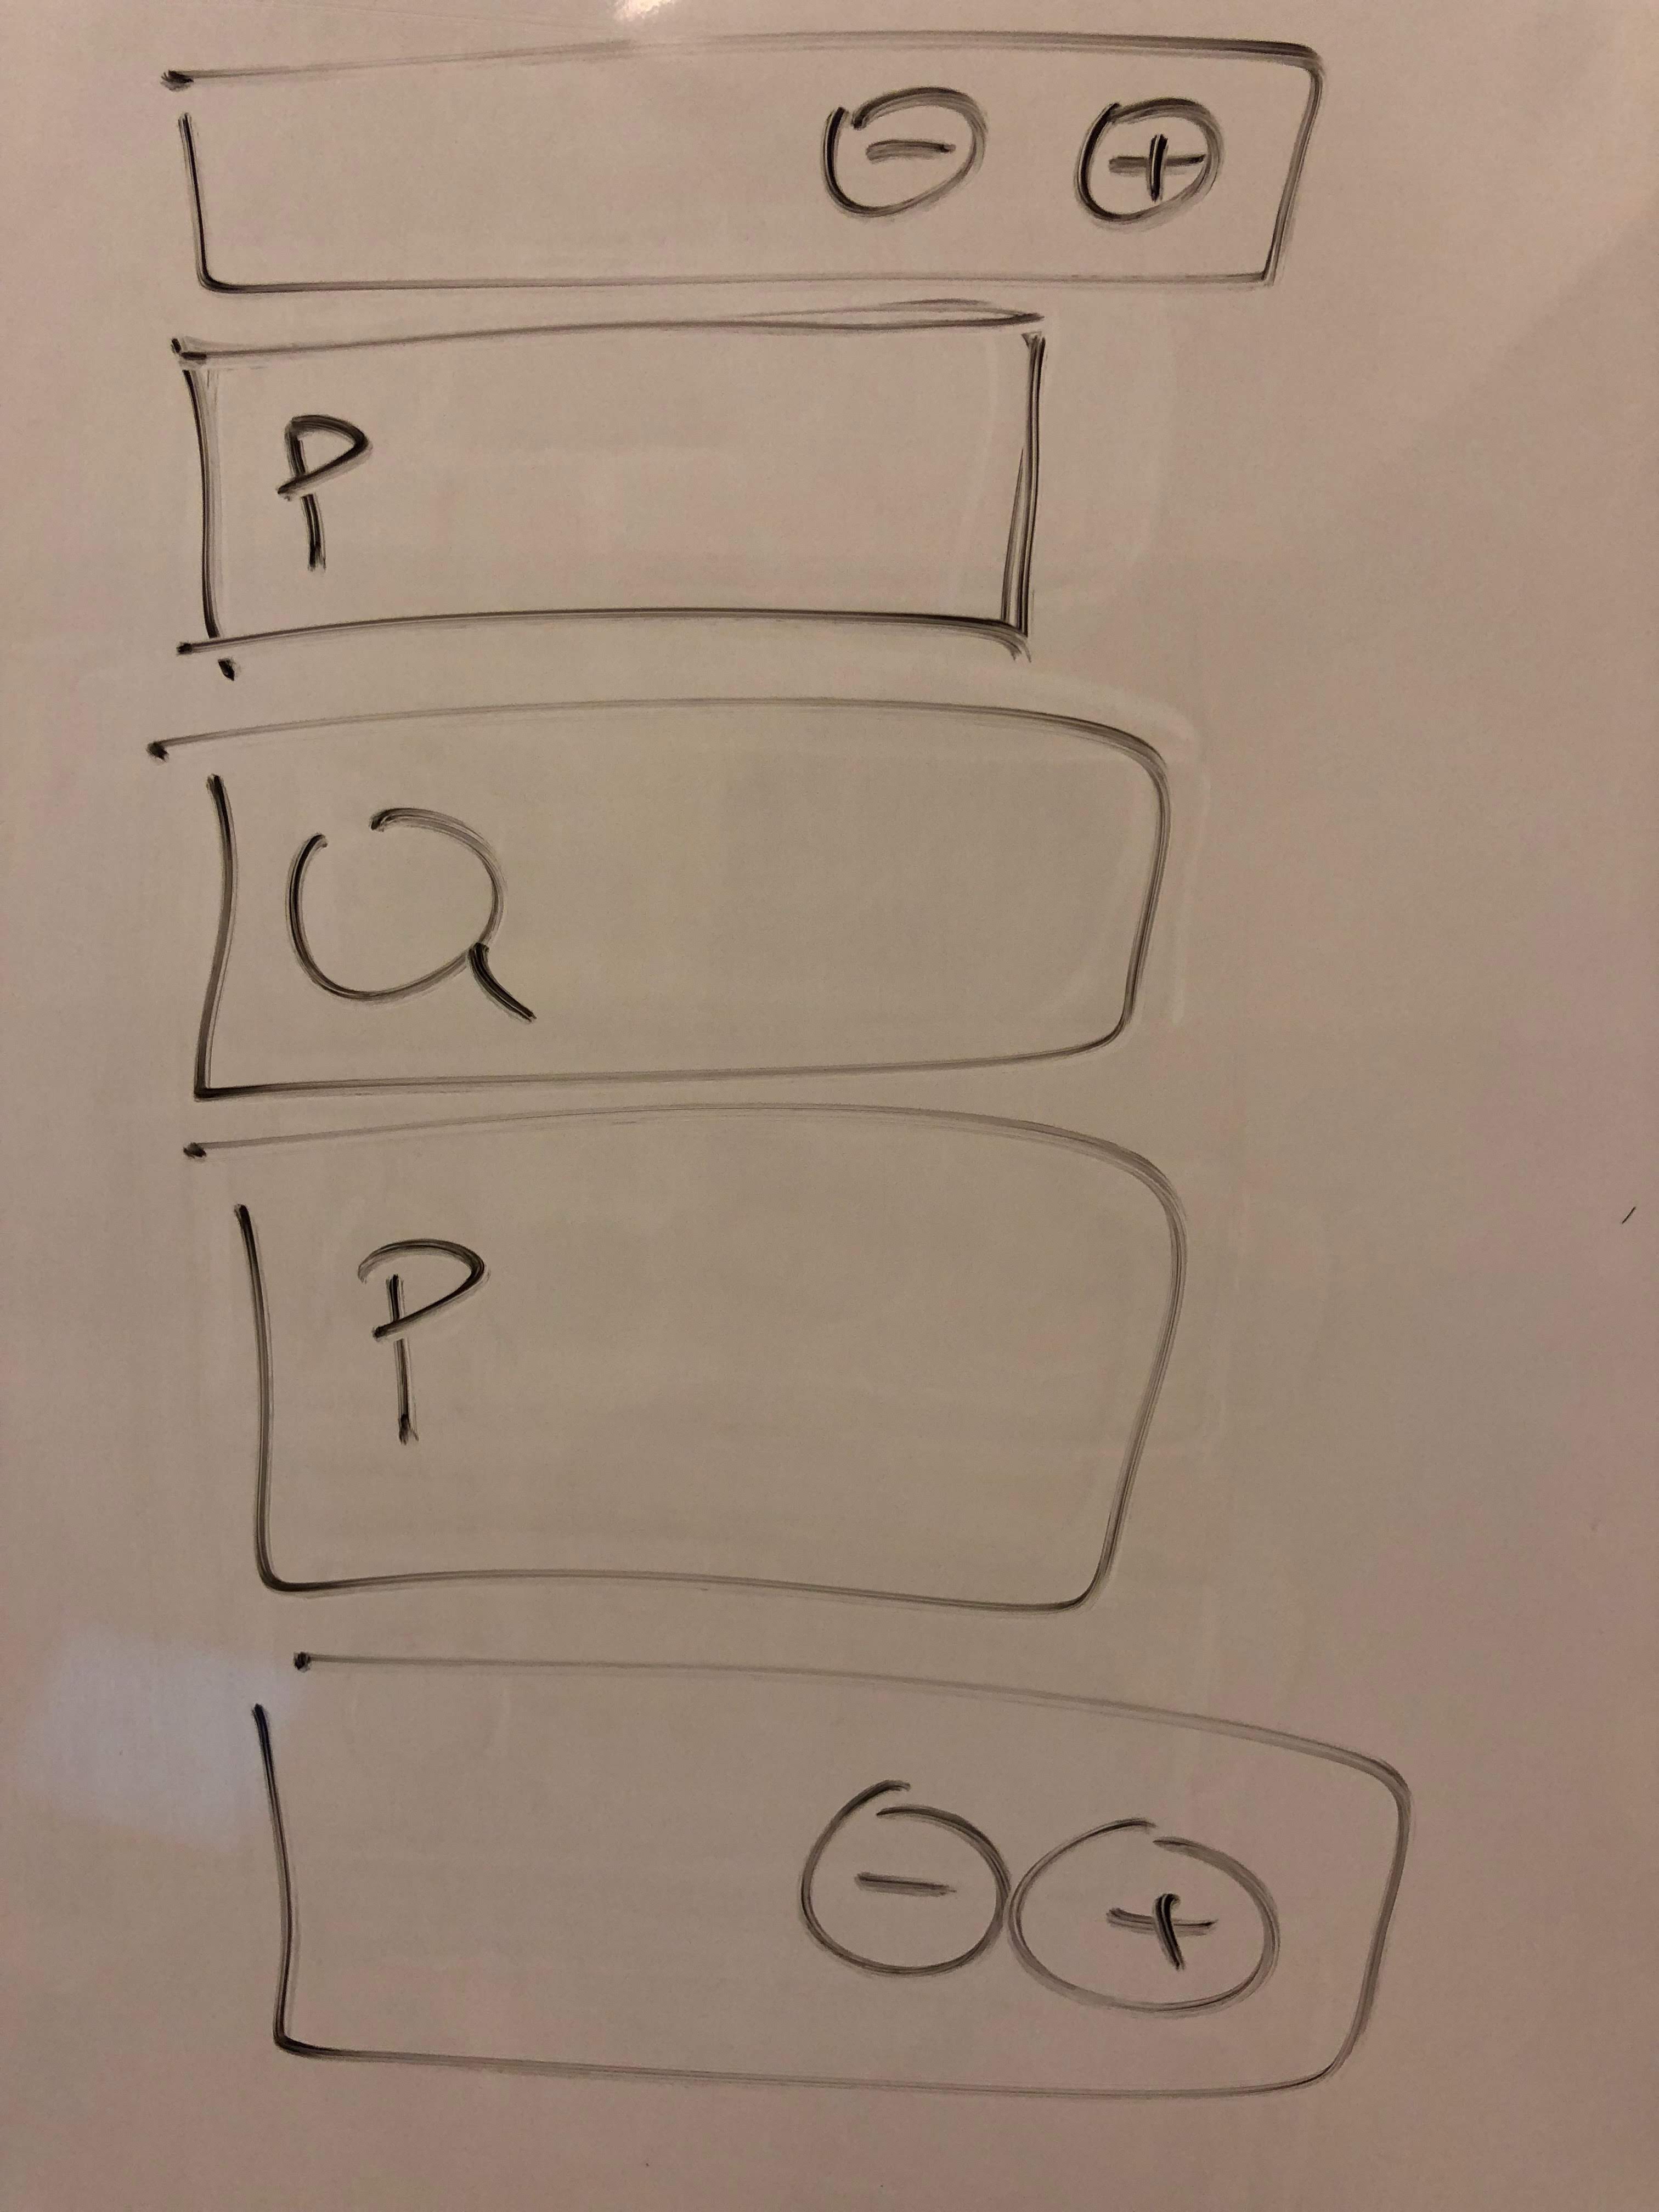 ⊖ ⊕
P
Q
P
⊖ ⊕